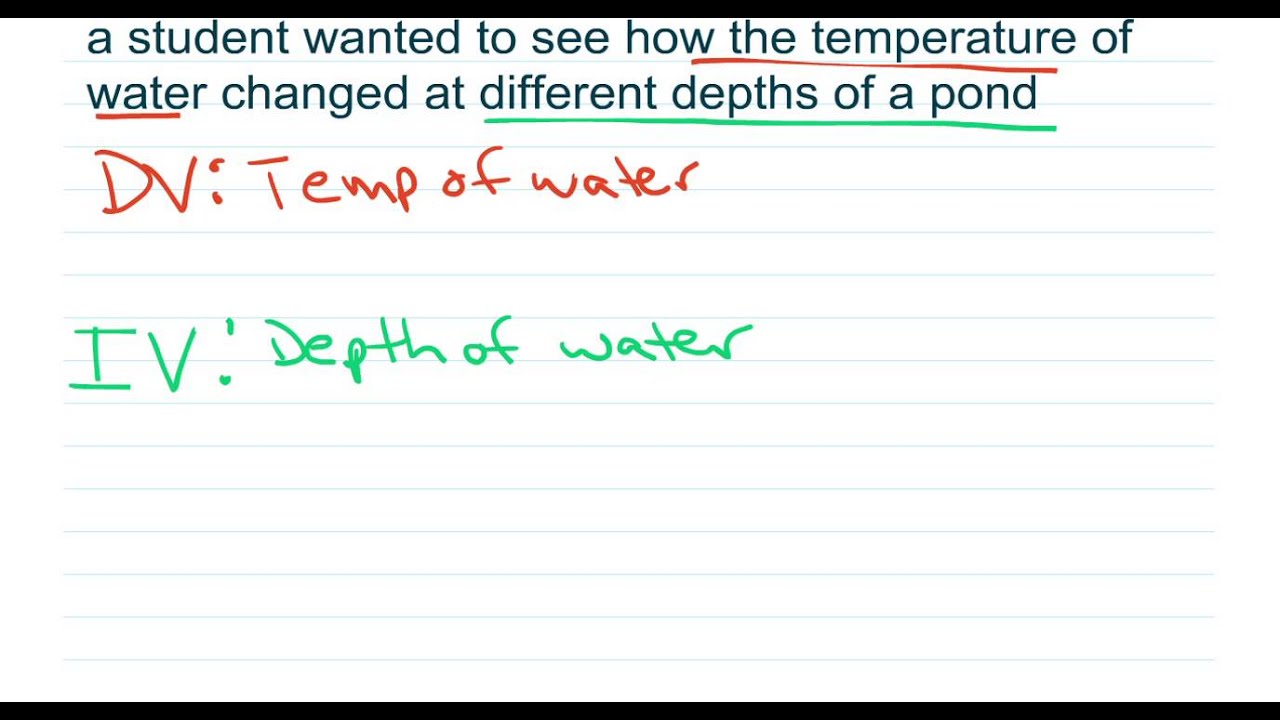 a student wanted to see how the temperature of
water changed at different depths of a pond
DV: Temp of water
IV: Depth of water